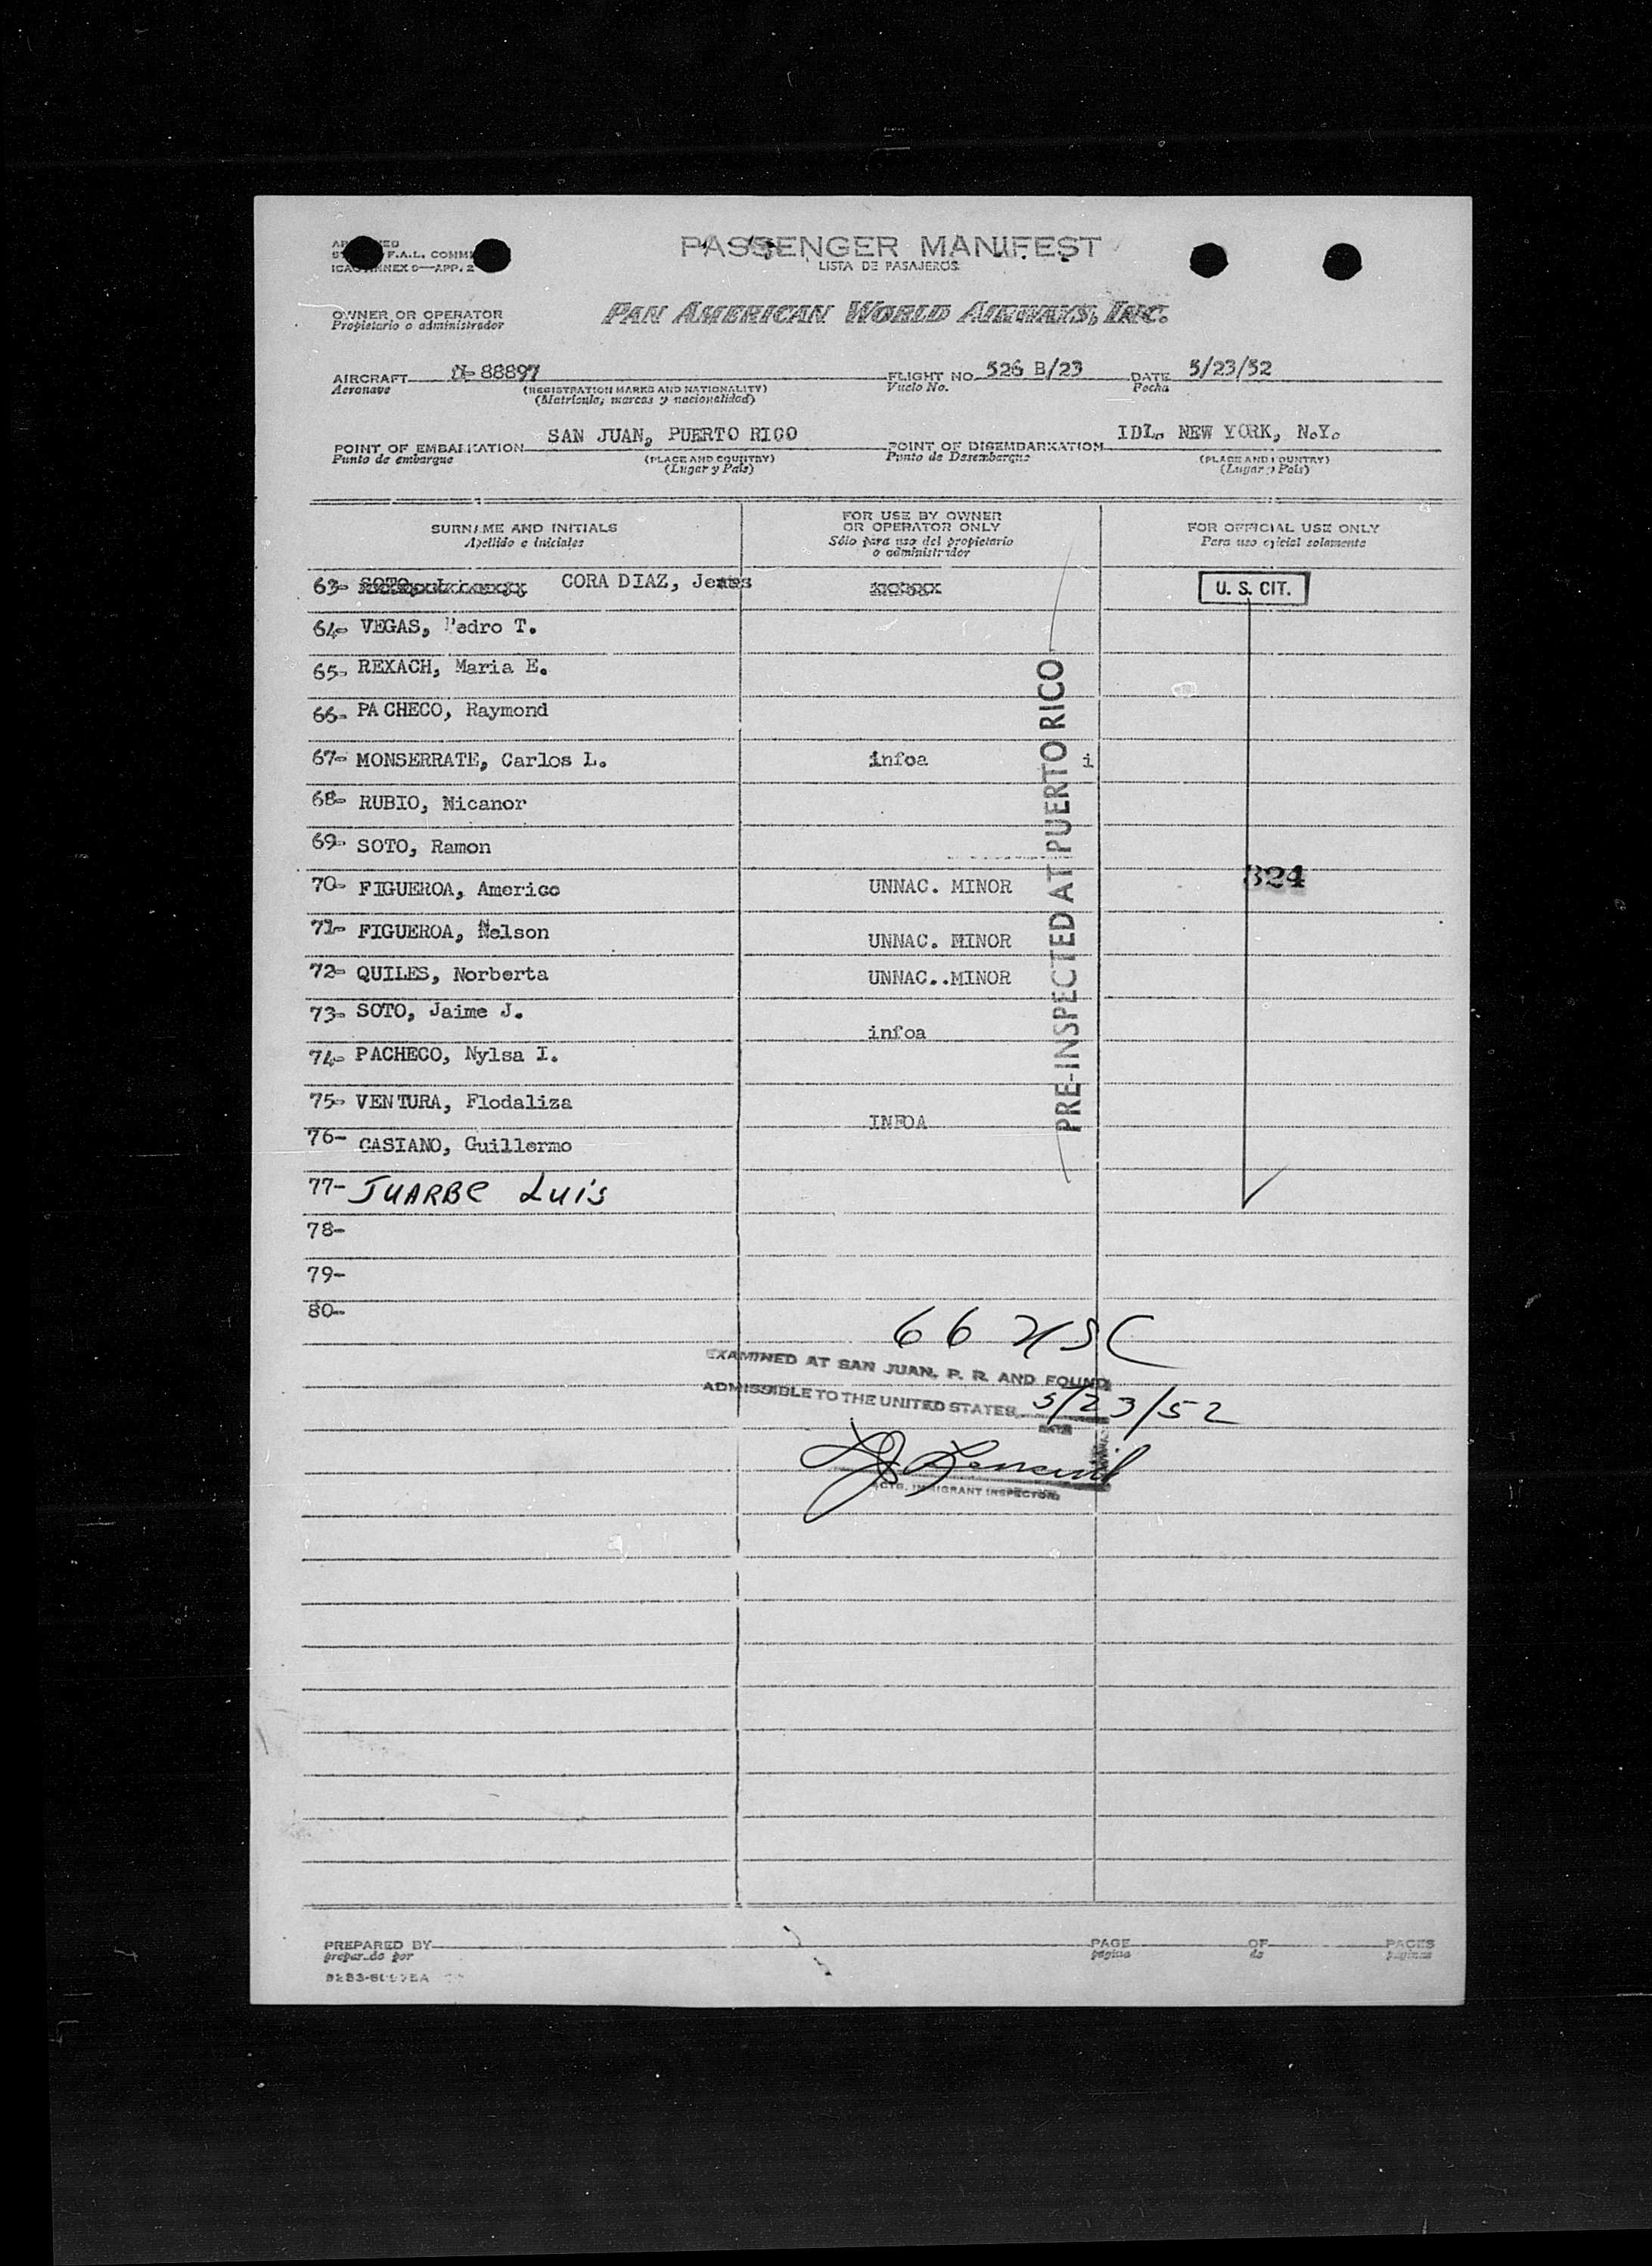 PASSENGER MANIFEST
LISTA DE PASAJEROS
F.A.L. COMMI
ICAO ANNEX 9—APP. 2
OWNER OR OPERATOR
Propietario o administrador
PAN AMERICAN WORLD AIRWAYS, INC.
AIRCRAFT N-88897 FLIGHT NO. 526 B/23 DATE 5/23/52
Aeronave (REGISTRATION MARKS AND NATIONALITY) Vuelo No. Fecha
(Matrícula, marcas y nacionalidad)
POINT OF EMBARKATION SAN JUAN, PUERTO RICO POINT OF DISEMBARKATION IDL. NEW YORK, N.Y.
Punto de embarque (PLACE AND COUNTRY) Punto de Desembarque (PLACE AND COUNTRY)
(Lugar y País) (Lugar y País)
SURNAME AND INITIALS FOR USE BY OWNER OR OPERATOR ONLY FOR OFFICIAL USE ONLY
Apellido e iniciales Sólo para uso del propietario o administrador Para uso oficial solamente
63- CORA DIAZ, U. S. CIT.
64- VEGAS, Pedro T.
65- REXACH, Maria E.
66- PACHECO, Raymond
67- MONSERRATE, Carlos L. infoa i
68- RUBIO, Nicanor
69- SOTO, Ramon
70- FIGUEROA, Americo UNNAC. MINOR 324
71- FIGUEROA, Nelson UNNAC. MINOR
72- QUILES, Norberta UNNAC..MINOR
73- SOTO, Jaime J. infoa
74- PACHECO, Nylsa I.
75- VENTURA, Flodaliza INFOA
76- CASIANO, Guillermo
77- JUARBE Luis
78-
79-
80-
PRE-INSPECTED AT PUERTO RICO
66 USC
EXAMINED AT SAN JUAN, P. R. AND FOUND
ADMISSIBLE TO THE UNITED STATES 5/23/52
DATE
ACTG. IMMIGRANT INSPECTOR
PREPARED BY PAGE OF PAGES
preparado por página de páginas